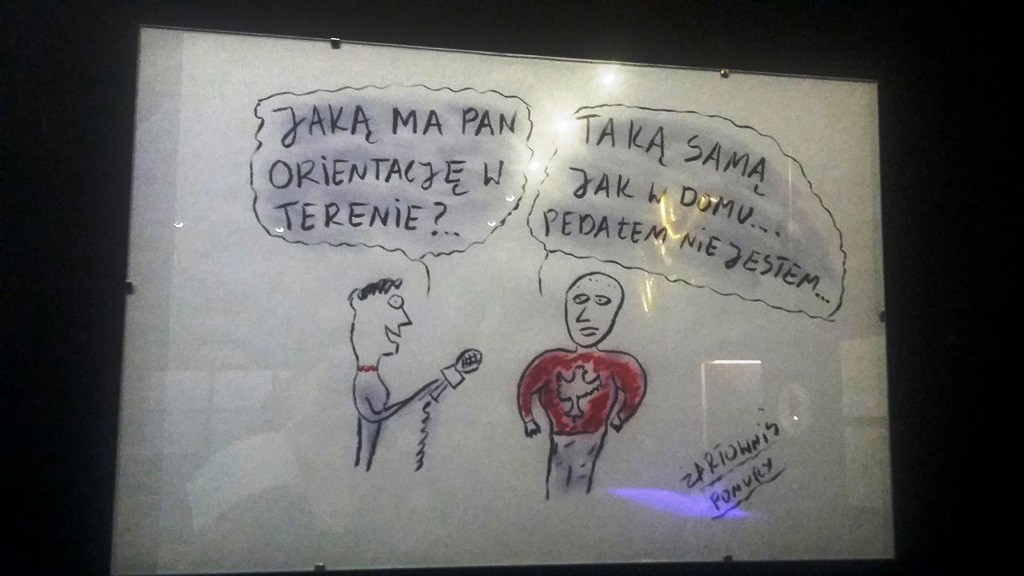 JAKĄ MA PAN
ORIENTACJĘ W
TERENIE?..
TAKĄ SAMĄ
JAK W DOMU...
PEDAŁEM NIE JESTEM...
ŻARTOWNIŚ
PONURY